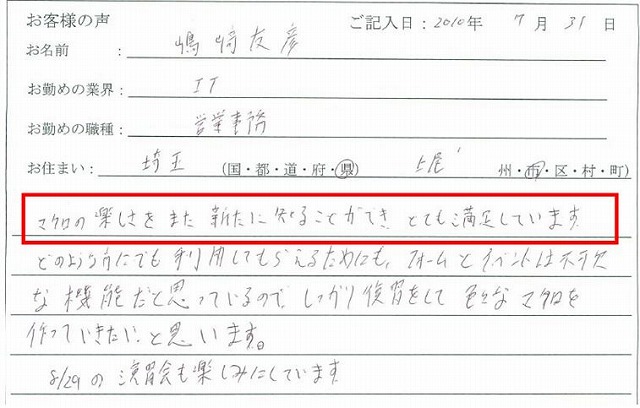 お客様の声 ご記入日：2010年 7月 31日
お名前 ： 嶋崎友彦
お勤めの業界： IT
お勤めの職種： 営業事務
お住まい： 埼玉 (国・都・道・府・県) 上尾 州・市・区・村・町)
マクロの楽しさをまた新たに知ることができ とても満足しています
どのような方にでも利用してもらえるためにも、フォームとイベントは不可欠
な機能だと思っているので しっかり復習をして 色々なマクロを
作っていきたいと思います。
8/29の演習会も楽しみにしています